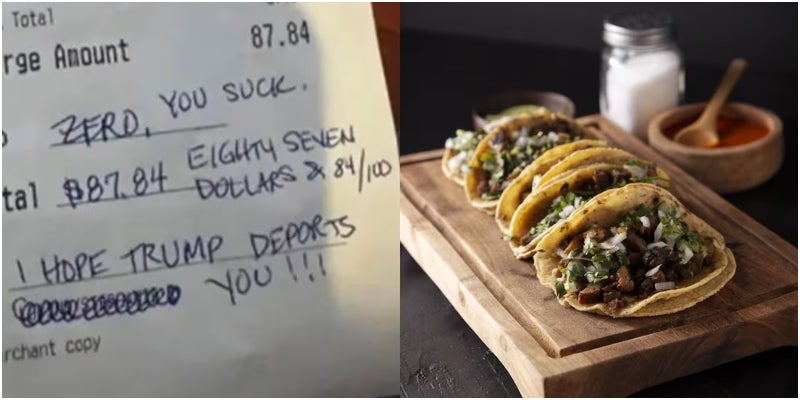 Total
rge Amount 87.84
ZERO, YOU SUCK.
tal $87.84 EIGHTY SEVEN
DOLLARS & 84/100
I HOPE TRUMP DEPORTS
YOU!!!
rchant copy